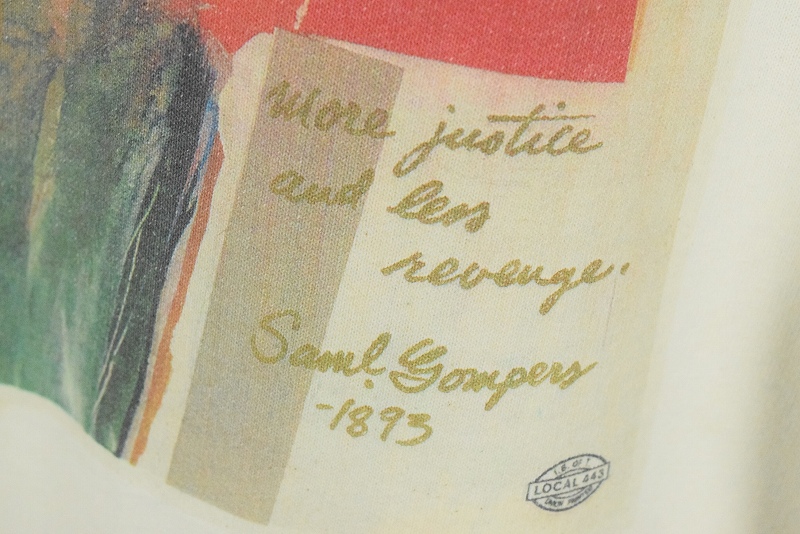 More justice
and less
revenge.
Saml. Gompers
-1893
LOCAL 443